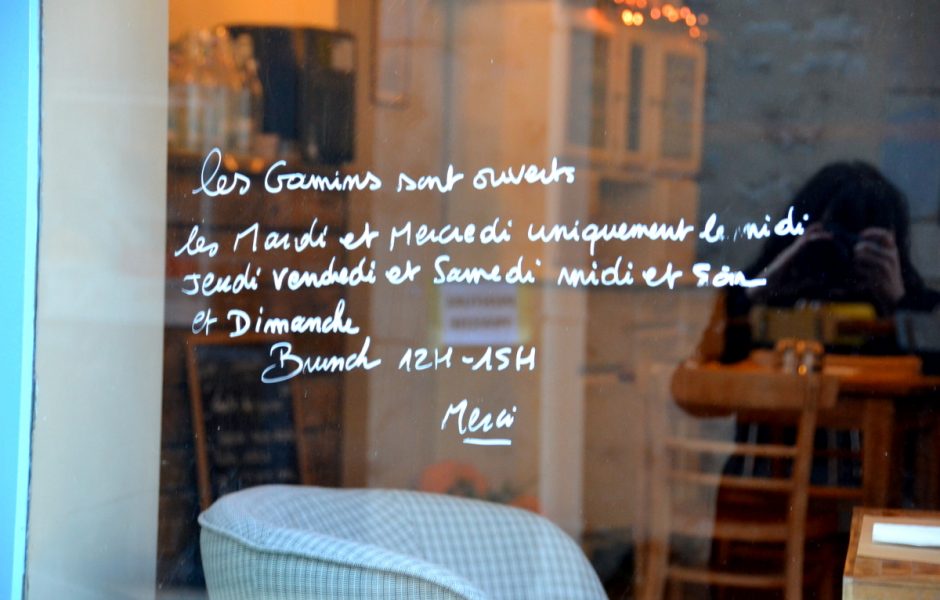 les Gamins sont ouverts
les Mardi et Mercredi uniquement le midi
jeudi vendredi et Samedi midi et soir
et Dimanche
Brunch 12H-15H
Merci